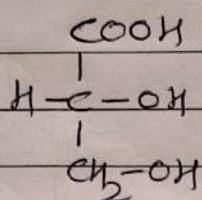 COOH
H-C-OH
CH₂-OH